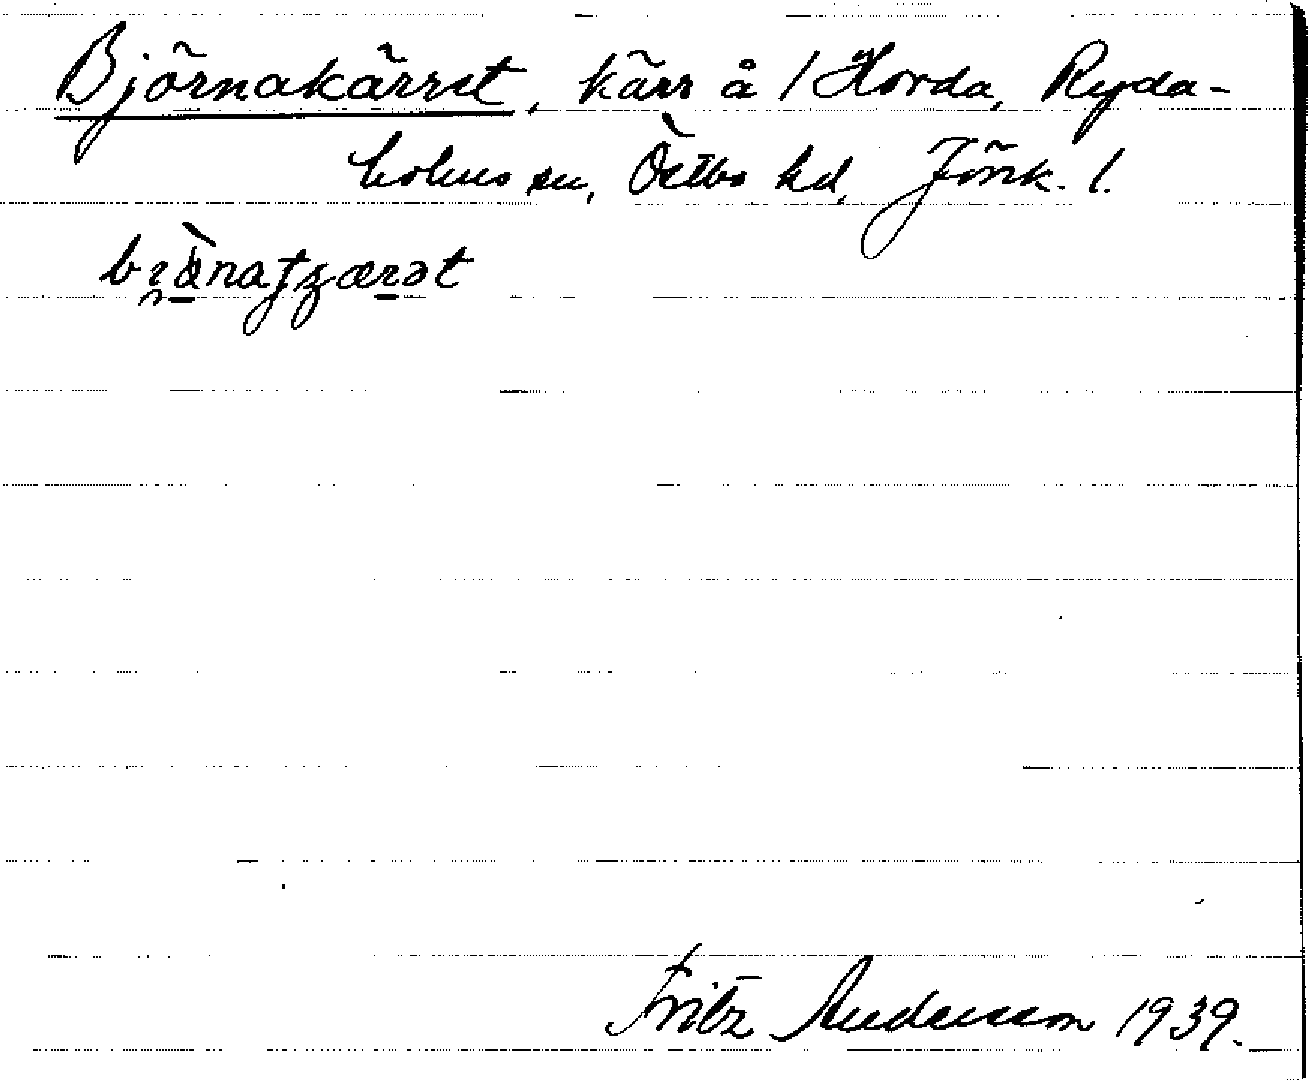 Björnakärret, kärr å / Horda, Ryda-
holms sn, Östbo hd, Jönk. l.
Fritz Andersson 1939.